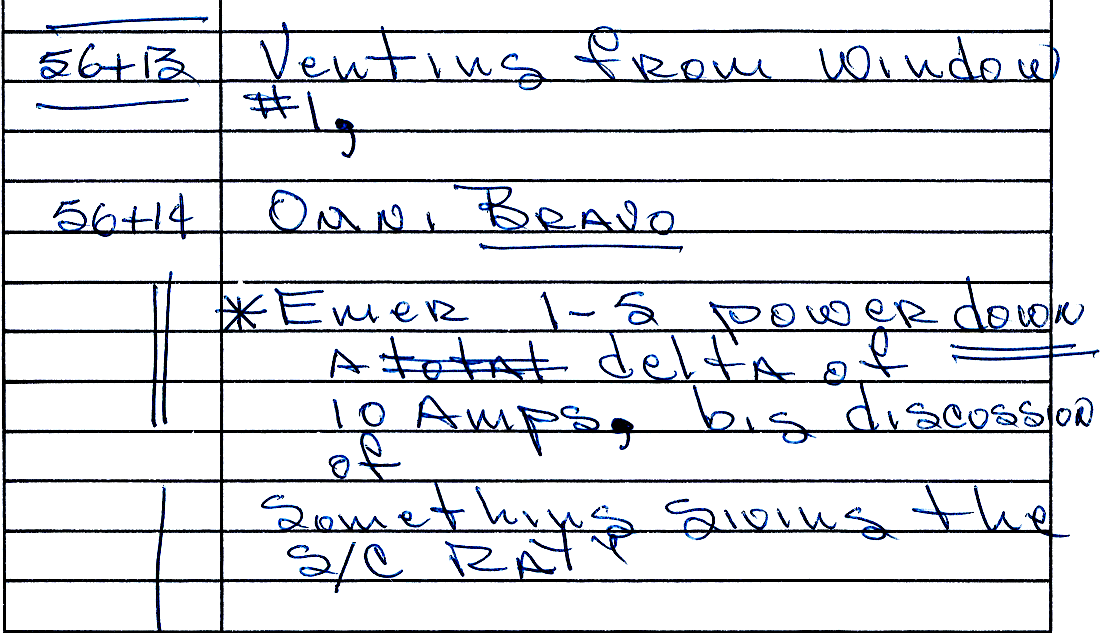 56+13 Venting from window
#1,
56+14 Omni Bravo
* Emer 1-5 power down
A total delta of
10 Amps, big discossion
of
Something giving the
S/C RAT